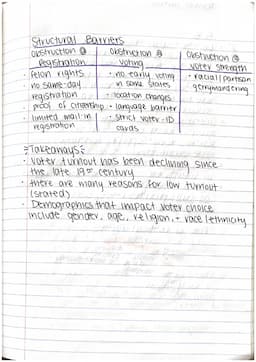 Structural Barriers
Obstruction @ Registration
· felon rights
no same-day
registration
proof of citizenship
limited mail-in
registration
Obstruction @ Voting
· no early voting
in some states
· location changes
· language barrier
· strict voter-ID
cards
Obstruction @ voter strength
· racial/partisan
gerrymandering
Takeaways:
· Voter turnout has been declining since
the late 19th century
· there are many reasons for low turnout
(stated)
· Demographics that impact voter choice
include gender, age, religion, + race/ethnicity